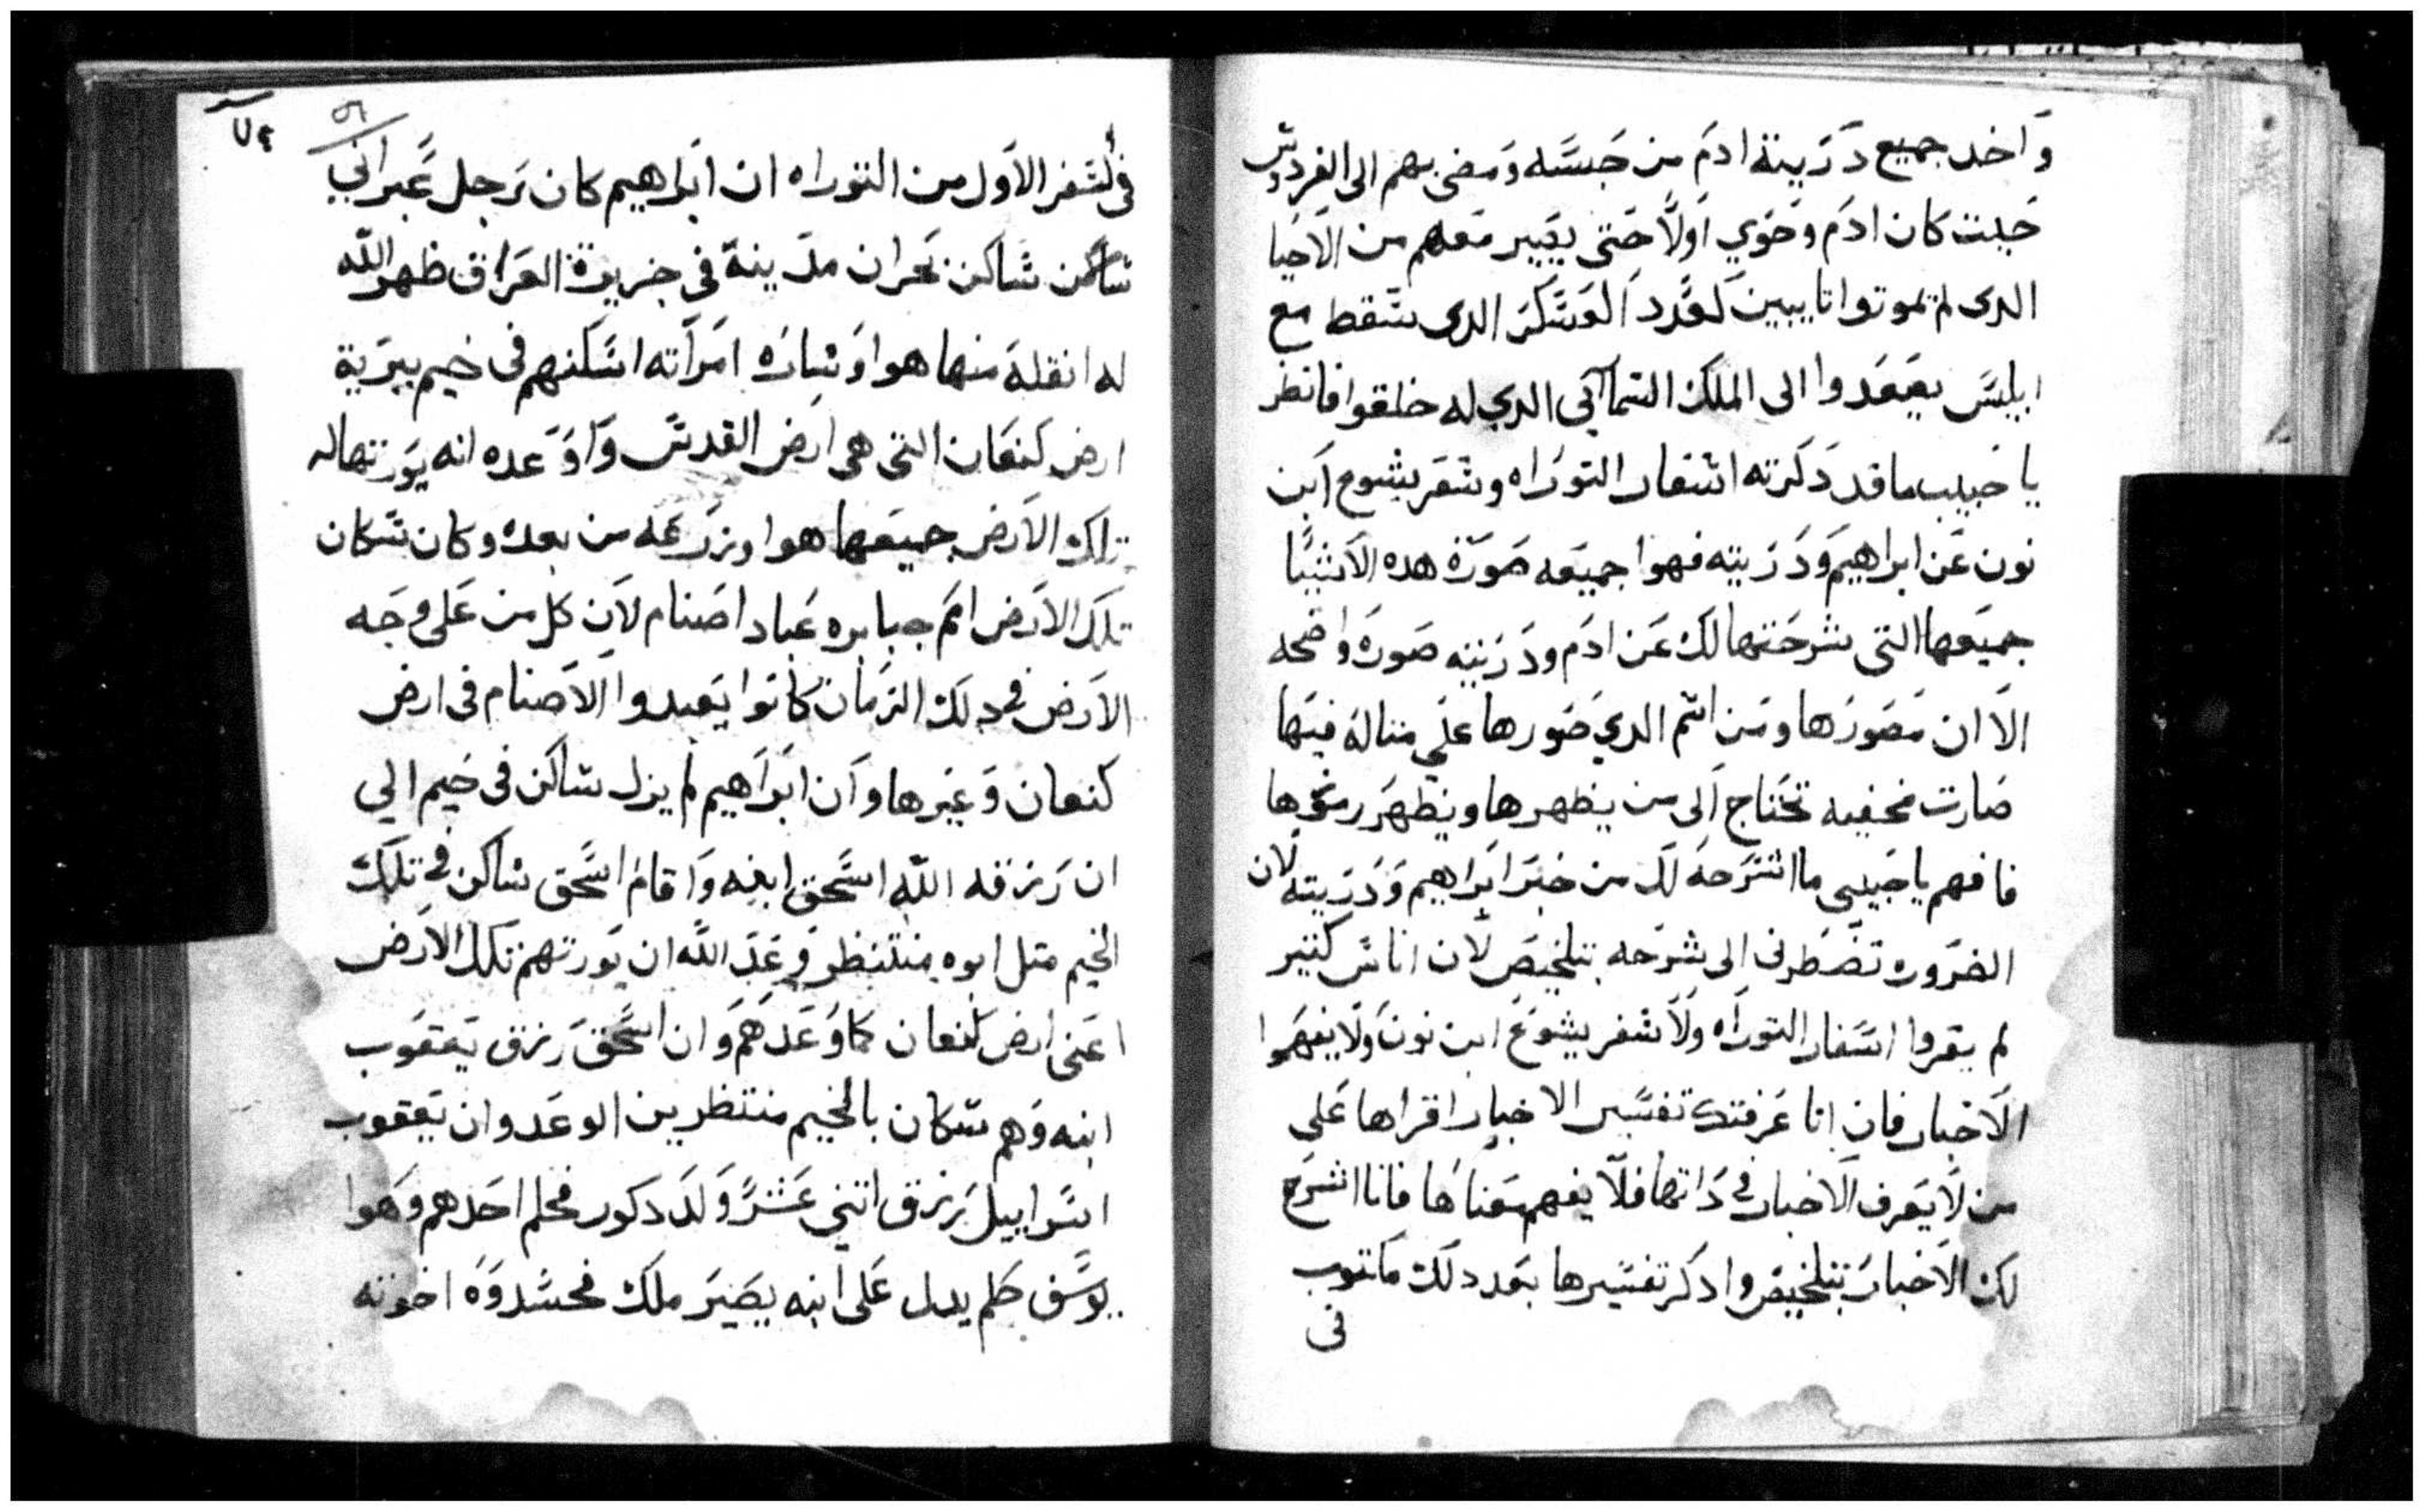 وَاخد جميع دَرَيتة ادمَ من حَبسَّه وَمضى بهم الى الفردوس
حَيت كان ادَم وحَوي اولاً حَتى يصَير معَهم من الاحَيا
الدى لم تموتوا تايبين لعَدد العَسَّكرَ الدى سَّقط مع
ابليسَّ يصَعَدوا الى الملك السَّماآئى الدي له خلقوا فانظر
يا حَبيب ما قد دَكرَته اسَّفار التورَاه وسَّفَر يشوع ابن
نون عَن ابراهيمَ وَدَرَيته فهوا جميعَه صَورَة هده الاشيَا
جميَعها التى شرحَتها لك عَن ادَم ودَرَيته صَورَه واضَحه
الاَ ان مَصَورَها ومَن اسَّم الدي صَورها عَلي مثالهَ فيهَا
صَارت مخَفيه تحَتاج الى من يظهرها ويظهَر رموزها
فافهم يا حَبيبى ما اشرَحَه لك من خبَر ابرَاهيم وَدَرَيته لان
الضرَوره تضَطرنى الى شرحَه بتلخيصَ لان اناسَّ كتير
لم يقروا اسَّفار التورَاه ولاَ سَّفر يشوعَ ابن نونَ ولاَ يفهَموا
الاَخبار فان انا عَرفتك تفسَّير الاخبار اقراها عَلى
من لاَ يَعرف الاَخبار فى دَاتها فلاَ يفهم مَعَناهَا فانا اشرحَ
لك الاَخبارَ بتلخيصَ وادكَر تفسَّيرها بَعد دلك مَاكتوب
فى
٧٤
٥٦
فى السَّفر الاوَل من التوراه ان ابَراهيم كان رَجل عَبرانى
سَّاكن سَّاكن بحَران مدَينة فى جزيرة العَراق ظهر الله
له انقله منها هوا وَسَّارَه امَرَاته اسَّكنهم فى خيم ببرَية
ارض كنعَان التى هى ارض القدسَّ وَاوَعده انه يوَرتها له
تلك الاَرض جميعَها هوا وزرَعَه من بعده وكان سَّكان
تلكَ الاَرض اممَ جبابره عَباد اصَنام لاَن كل من عَلى وجَه
الاَرض فى دلك الزمَان كانوا يعَبدوا الاَصَنام فى ارض
كنعان وَغيَرها وَان ابَرَاهيم لم يزل سَّاكن فى خيم الي
ان رَزقه الله اسَّحَق ابنه وَاقامَ اسَّحَق سَّاكن فى تلكَ
الخيم متل ابوه منتنظر وَعَدَ الله ان يوَرتهم تلك الاَرض
اعَنى ارض كنعان كما وَعَدهمَ وَان اسَّحَق رَزق يَعقوب
ابنه وَهم سَّكان بالخيم منتظرين الوعَد وان يَعقوب
اسَّراييل رَزق اتني عَشرَ وَلدَ دكور فحلم احَدهم وَهوا
يوسَّف حَلم يدل عَلى انه يصَيرَ ملك فحسَّدوَه اخوته